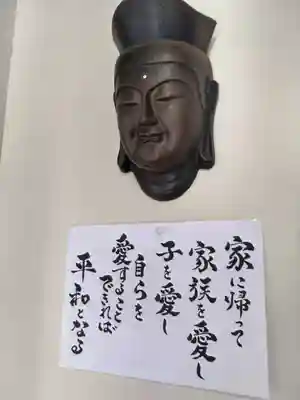 家に帰って
家族を愛し
子を愛し
自らを
愛すること
できれば
平和となる